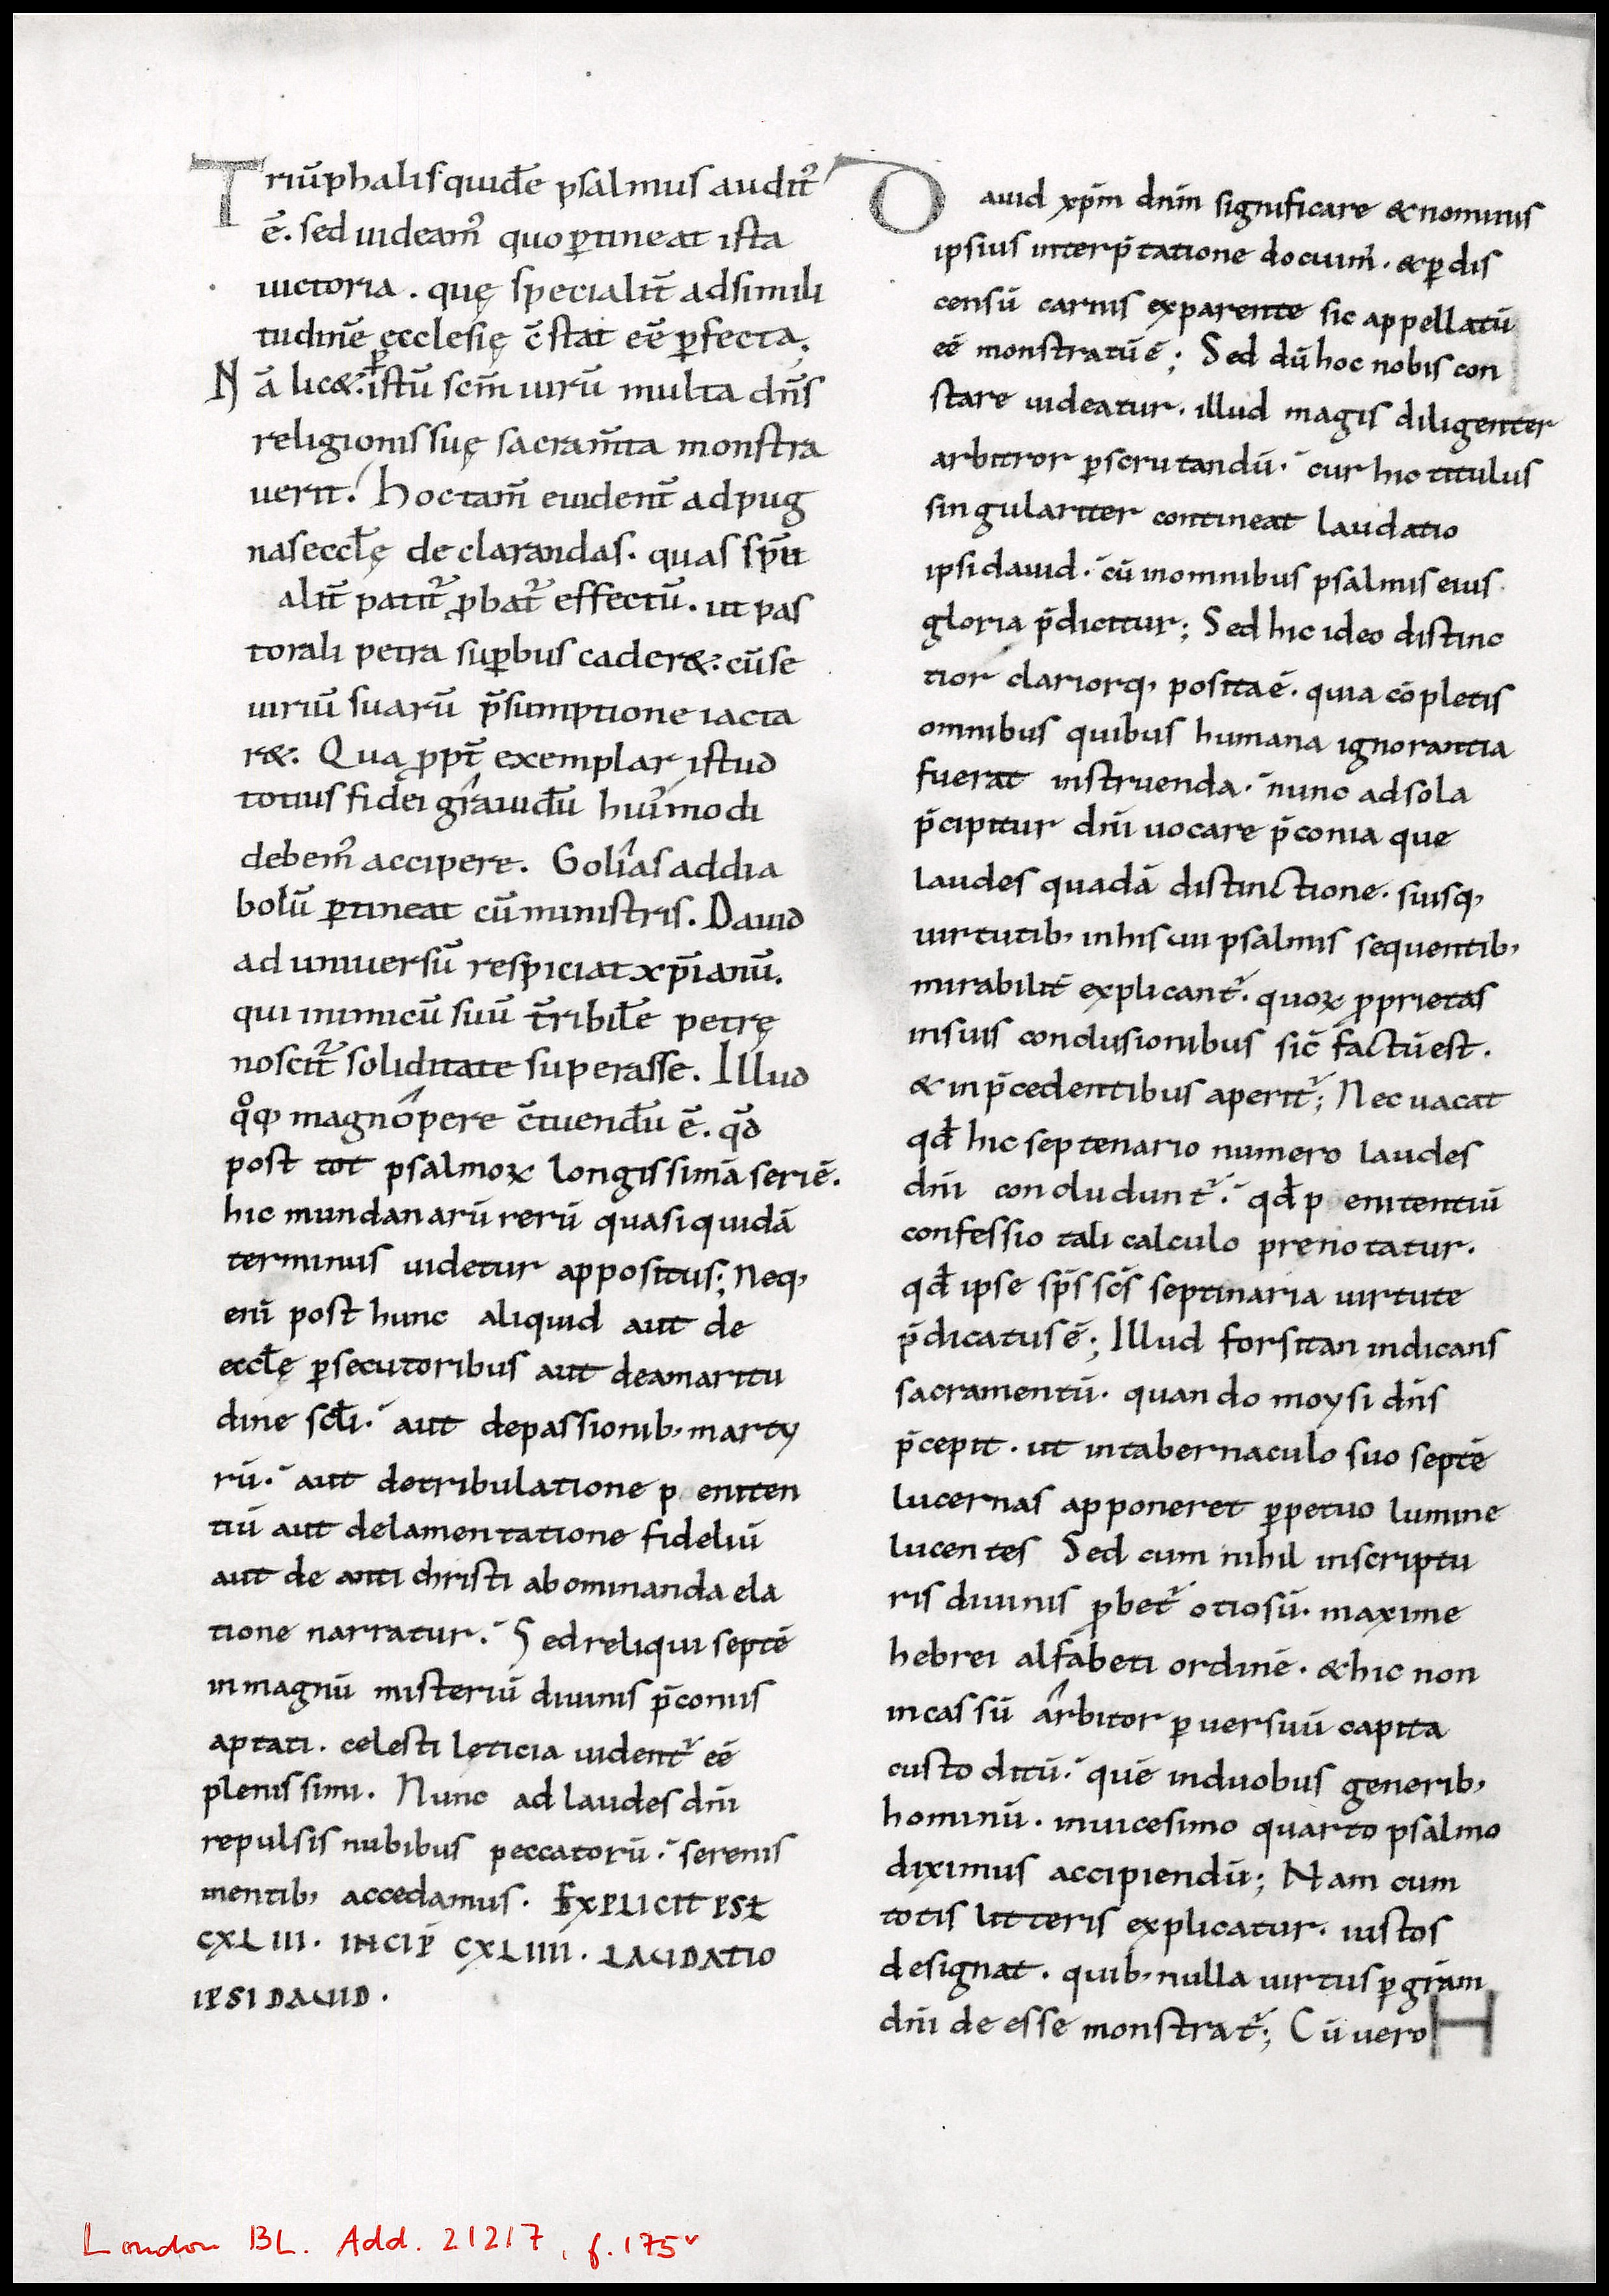 Triūphalis quidē psalmus audit᷒
ē. sed uideam᷒ quo ꝑtineat ista
uictoria. quę specialit̄ ad simili
tudinē ecclesię c̄stat eē ꝑfecta.
Nā lic&. ꝑ istū sc̄m uirū multa dn̄s
religionis suę sacram̄ta monstra
uerit. Hoc tam̄ euident̄ ad pug
nas eccl̄ę declarandas. quas sp̄u
alit̄ patit᷒ ꝓbat᷒ effectū. ut pas
torali petra suꝑbus cader&. cū se
uiriū suarū p̄sumptione iacta
r&. Quaꝓpt̄ exemplar istud
totius fidei gͥauidū hui᷒modi
debem᷒ accipere. Golias ad dia
bolū ꝑtineat cū ministris. Dauid
ad uniuersū respiciat xp̄ianū.
qui inimicū suū t̄ribilē petrę
noscit᷒ soliditate superasse. Illud
qͦq, magnopere c̄tuendū ē. qđ
post tot psalmoꝝ longissimā seriē.
hic mundanarū rerū quasi quidā
terminus uidetur appositus; Neq,
eni᷒ post hunc aliquid aut de
eccl̄ę ꝑsecutoribus aut de amaritu
dine sc̄li. aut de passionib, marty
rū. aut de tribulatione p eniten
tiū aut de lamentatione fideliū
aut de antichristi abominanda ela
tione narratur. Sed reliqui septē
in magnū misteriū diuinis p̄coniis
aptati. celesti lęticia uident᷒ eē
plenissimi. Nunc ad laudes dn̄i
repulsis nubibus peccatorū. serenis
mentib, accedamus. EXPLICIT PSŁ
CXLIII. INCIP̄ CXLIIII. LAUDATIO
IPSI DAUID.
Dauid xp̄m dn̄m significare & nominis
ipsius interp̄tatione docuim᷒. & ꝑ dis
censū carnis ex parente sic appellatū
eē monstratū ē; Sed dū hoc nobis con
stare uideatur. illud magis diligenter
arbitror ꝑscrutandū. cur hic titulus
singulariter contineat laudatio
ipsi dauid. cū in omnibus psalmis eius
gloria p̄dicitur; Sed hic ideo distinc
tior clariorq, posita ē. quia cōpletis
omnibus quibus humana ignorantia
fuerat instruenda. nunc ad sola
p̄cipitur dn̄i uocare p̄conia que
laudes quadā distinctione. siusq,
uirtutib, in his uii psalmis sequentib,
mirabilit̄ explicant᷒. quoꝝ ꝓprietas
in suis conclusionibus sic᷒ factū est.
& in p̄cedentibus aperit᷒; Nec uacat
qđ hic septenario numero laudes
dn̄i concludunt᷒. qđ p enitentiū
confessio tali calculo prenotatur.
qđ ipse sp̄s sc̄s septinaria uirtute
p̄dicatus ē; Illud forsitan indicans
sacramentū. quando moysi dn̄s
p̄cepit. ut in tabernaculo suo septē
lucernas apponeret ꝑpetuo lumine
lucentes Sed cum nihil in scriptu
ris diuinis ꝓbet᷒ otiosū. maxime
hebrei alfabeti ordinē. & hic non
in cassū arbitor ꝑ uersuū capita
custoditū. quē in duobus generib,
hominū. in uicesimo quarto psalmo
diximus accipiendū; Nam cum
totis litteris explicatur. iustos
designat. quib, nulla uirtus ꝑ gr̄am
dn̄i deesse monstrat᷒; Cū uero H
London BL. Add. 21217, f. 175v